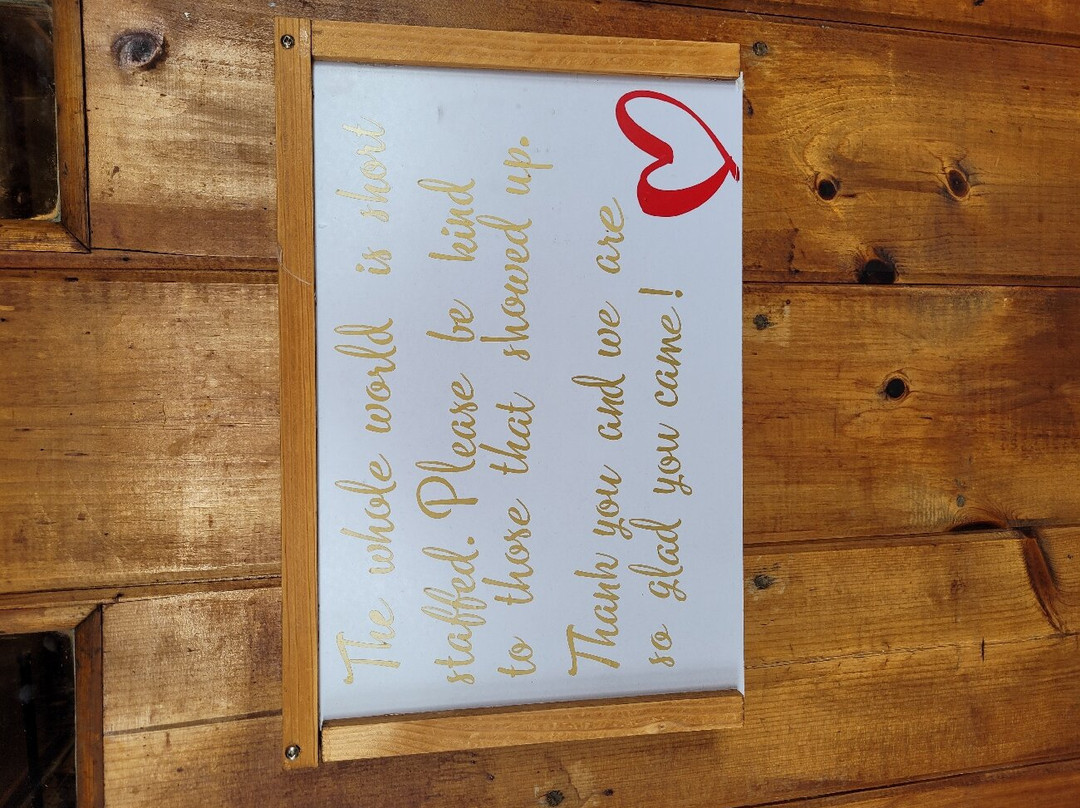 The whole world is short
staffed. Please be kind
to those that showed up.
Thank you and we are
so glad you came!